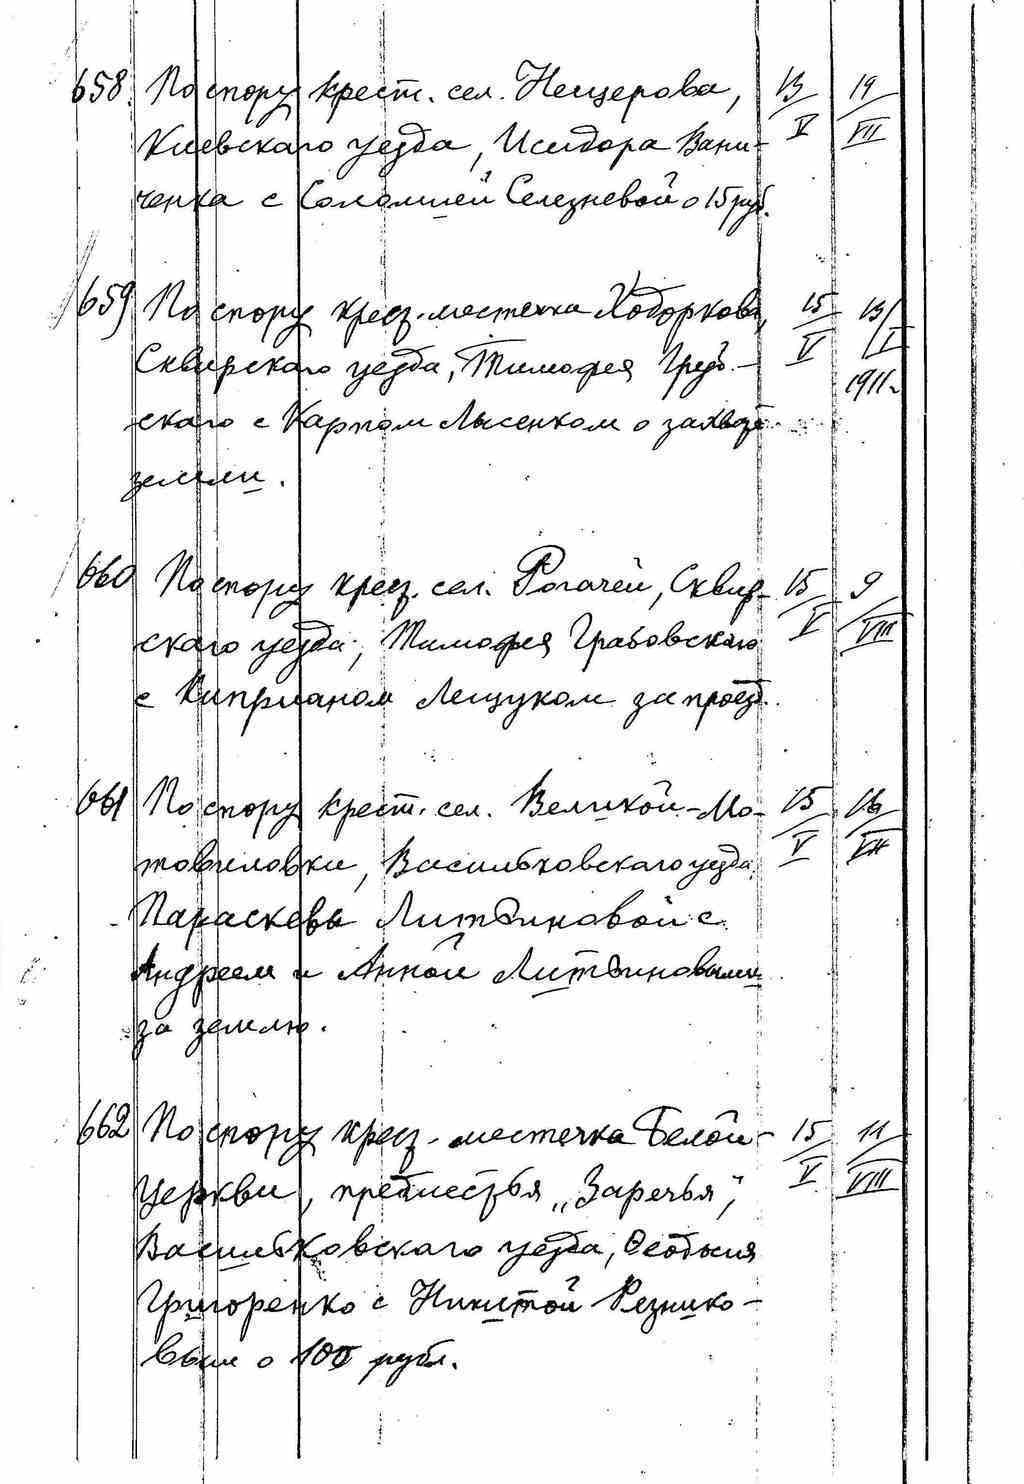 658. По спору крест. сел. Нещерова, 13/V 19/VII
Киевскаго уезда, Исидора Вани-
ченка с Соломией Селезневой о 15 руб.
659 По спору крест. местечка Ходоркова, 15/V 13/I 1911 г
Сквирскаго уезда, Тимофея Груб-
скаго с Карпом Лысенком о захвате
земли.
660 По спору крест. сел. Рогачей, Сквир- 15/V 9/VIII
скаго уезда, Тимофея Грабовскаго
с Киприаном Лещуком за проезд.
661 По спору крест. сел. Великой-Мо- 15/V 16/VII
товиловки, Васильковскаго уезда,
Параскевы Литвиновой с
Андреем и Анной Литвиновыми
за землю.
662 По спору крест. местечка Белой- 15/V 11/VIII
Церкви, предместья „Заречья",
Васильковскаго уезда, Феодосия
Григоренко с Никитой Резнико-
вым о 100 рубл.